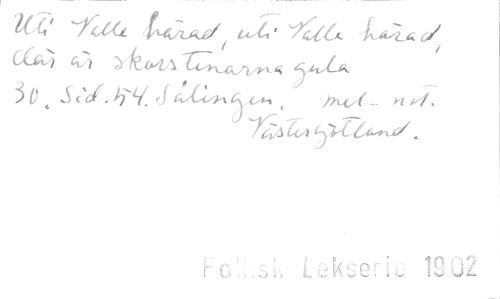 Uti Valle härad, uti Valle härad,
där är skorstenarna gula
30. Sid. 54. Sälingen. mel-not.
Västergötland.
Folk.sk Lekserie 1902